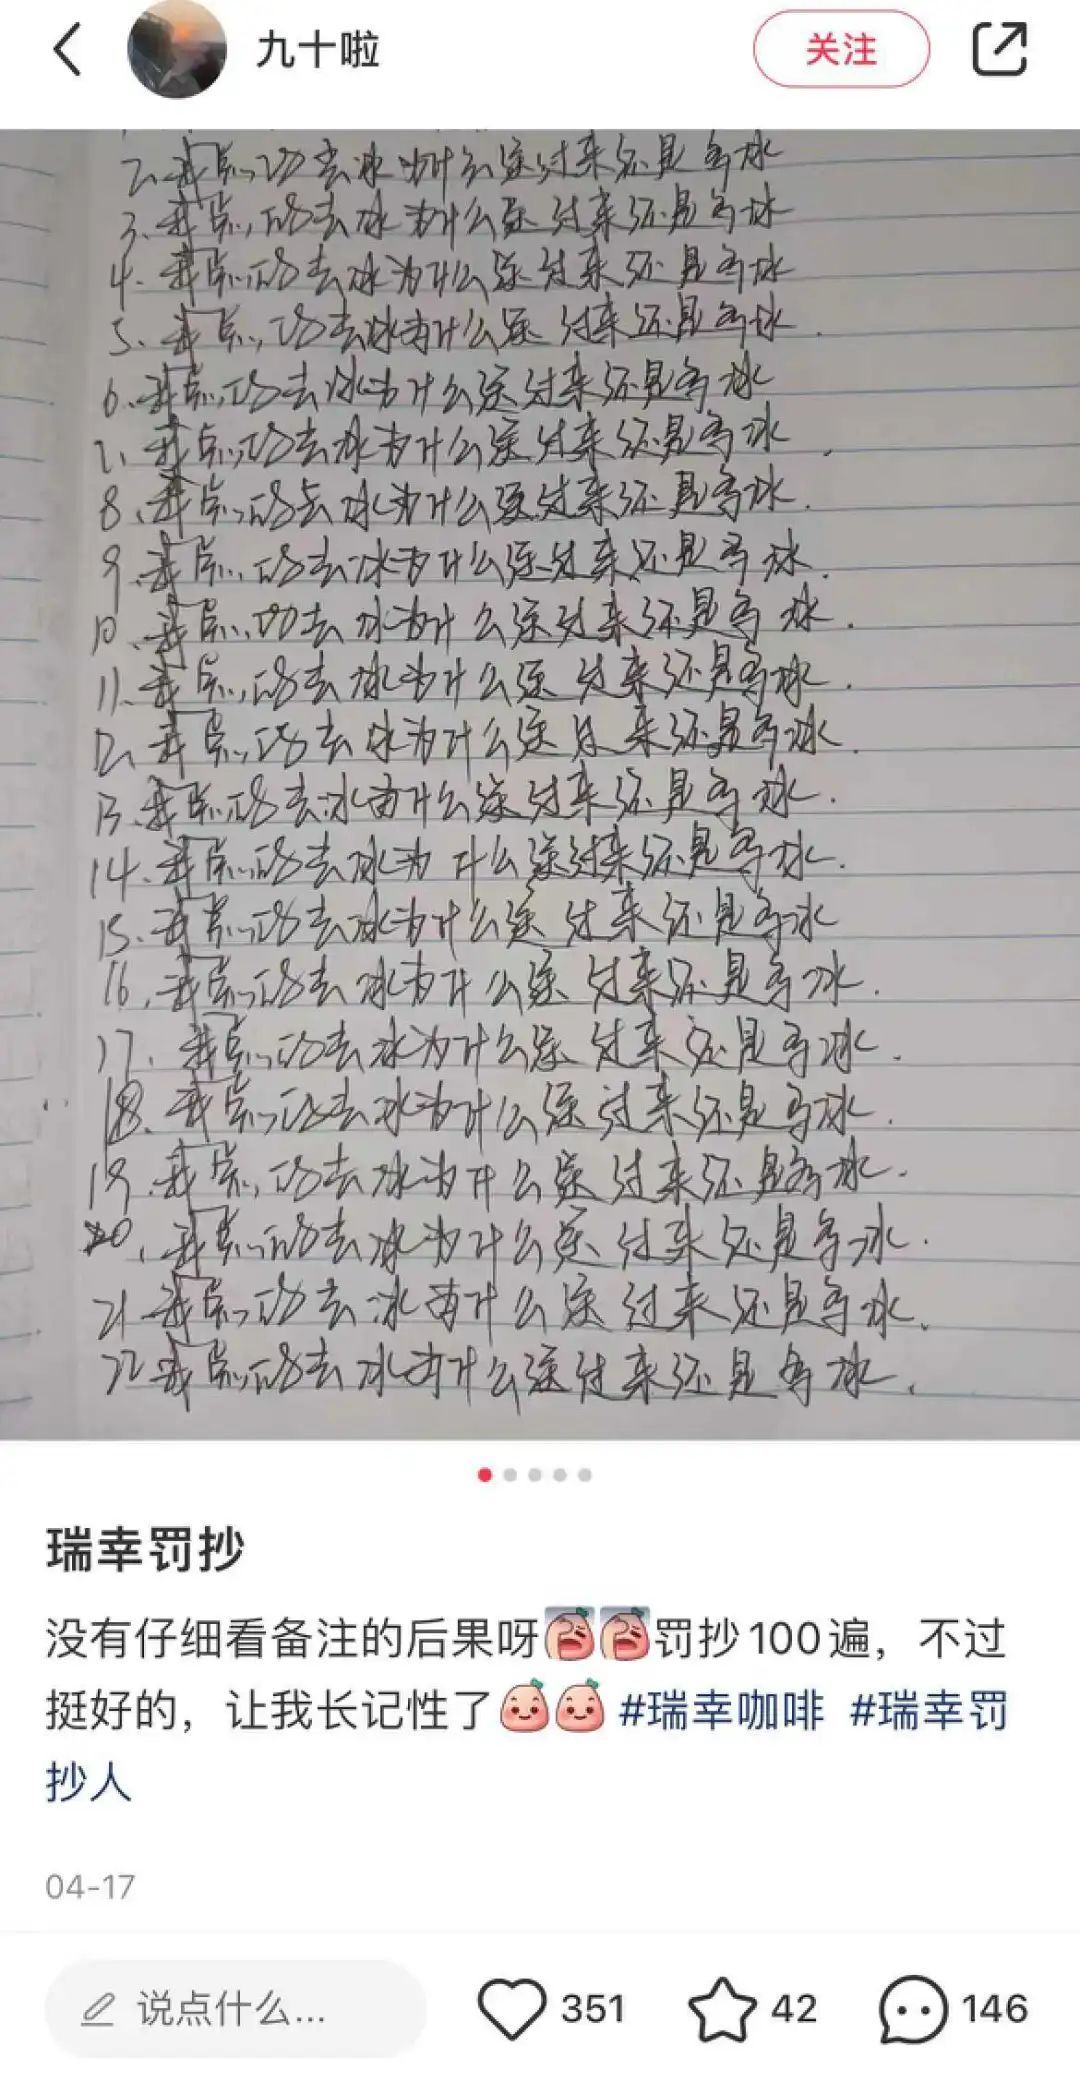 九十啦
关注
2、我点的去冰为什么送过来还是多冰
3、我点的去冰为什么送过来还是多冰
4、我点的去冰为什么送过来还是多冰
5、我点的去冰为什么送过来还是多冰.
6、我点的去冰为什么送过来还是多冰
7、我点的去冰为什么送过来还是多冰.
8、我点的去冰为什么送过来还是多冰.
9、我点的去冰为什么送过来还是多冰.
10、我点的去冰为什么送过来还是多冰.
11、我点的去冰为什么送过来还是多冰.
12、我点的去冰为什么送过来还是多冰.
13、我点的去冰为什么送过来还是多冰.
14、我点的去冰为什么送过来还是多冰.
15、我点的去冰为什么送过来还是多冰
16、我点的去冰为什么送过来还是多冰.
17、我点的去冰为什么送过来还是多冰.
18、我点的去冰为什么送过来还是多冰.
19、我点的去冰为什么送过来还是多冰.
20、我点的去冰为什么送过来还是多冰.
21、我点的去冰为什么送过来还是多冰.
22、我点的去冰为什么送过来还是多冰.
瑞幸罚抄
没有仔细看备注的后果呀罚抄100遍，不过
挺好的，让我长记性了 #瑞幸咖啡 #瑞幸罚
抄人
04-17
说点什么... 351 42 146